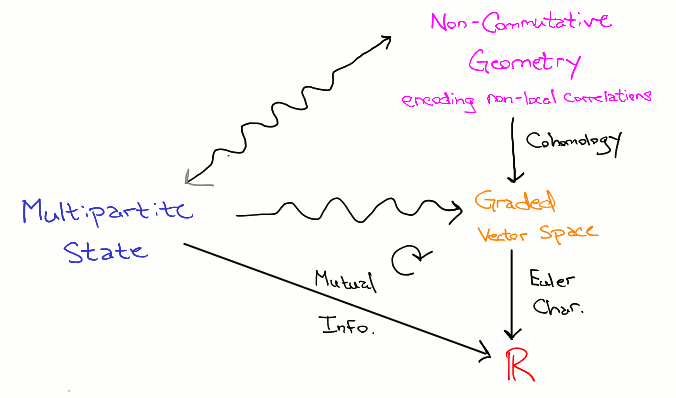 Non-Commutative
Geometry
encoding non-local correlations
Cohomology
Multipartite
State
Graded
Vector Space
Mutual
Info.
Euler
Char.
ℝ